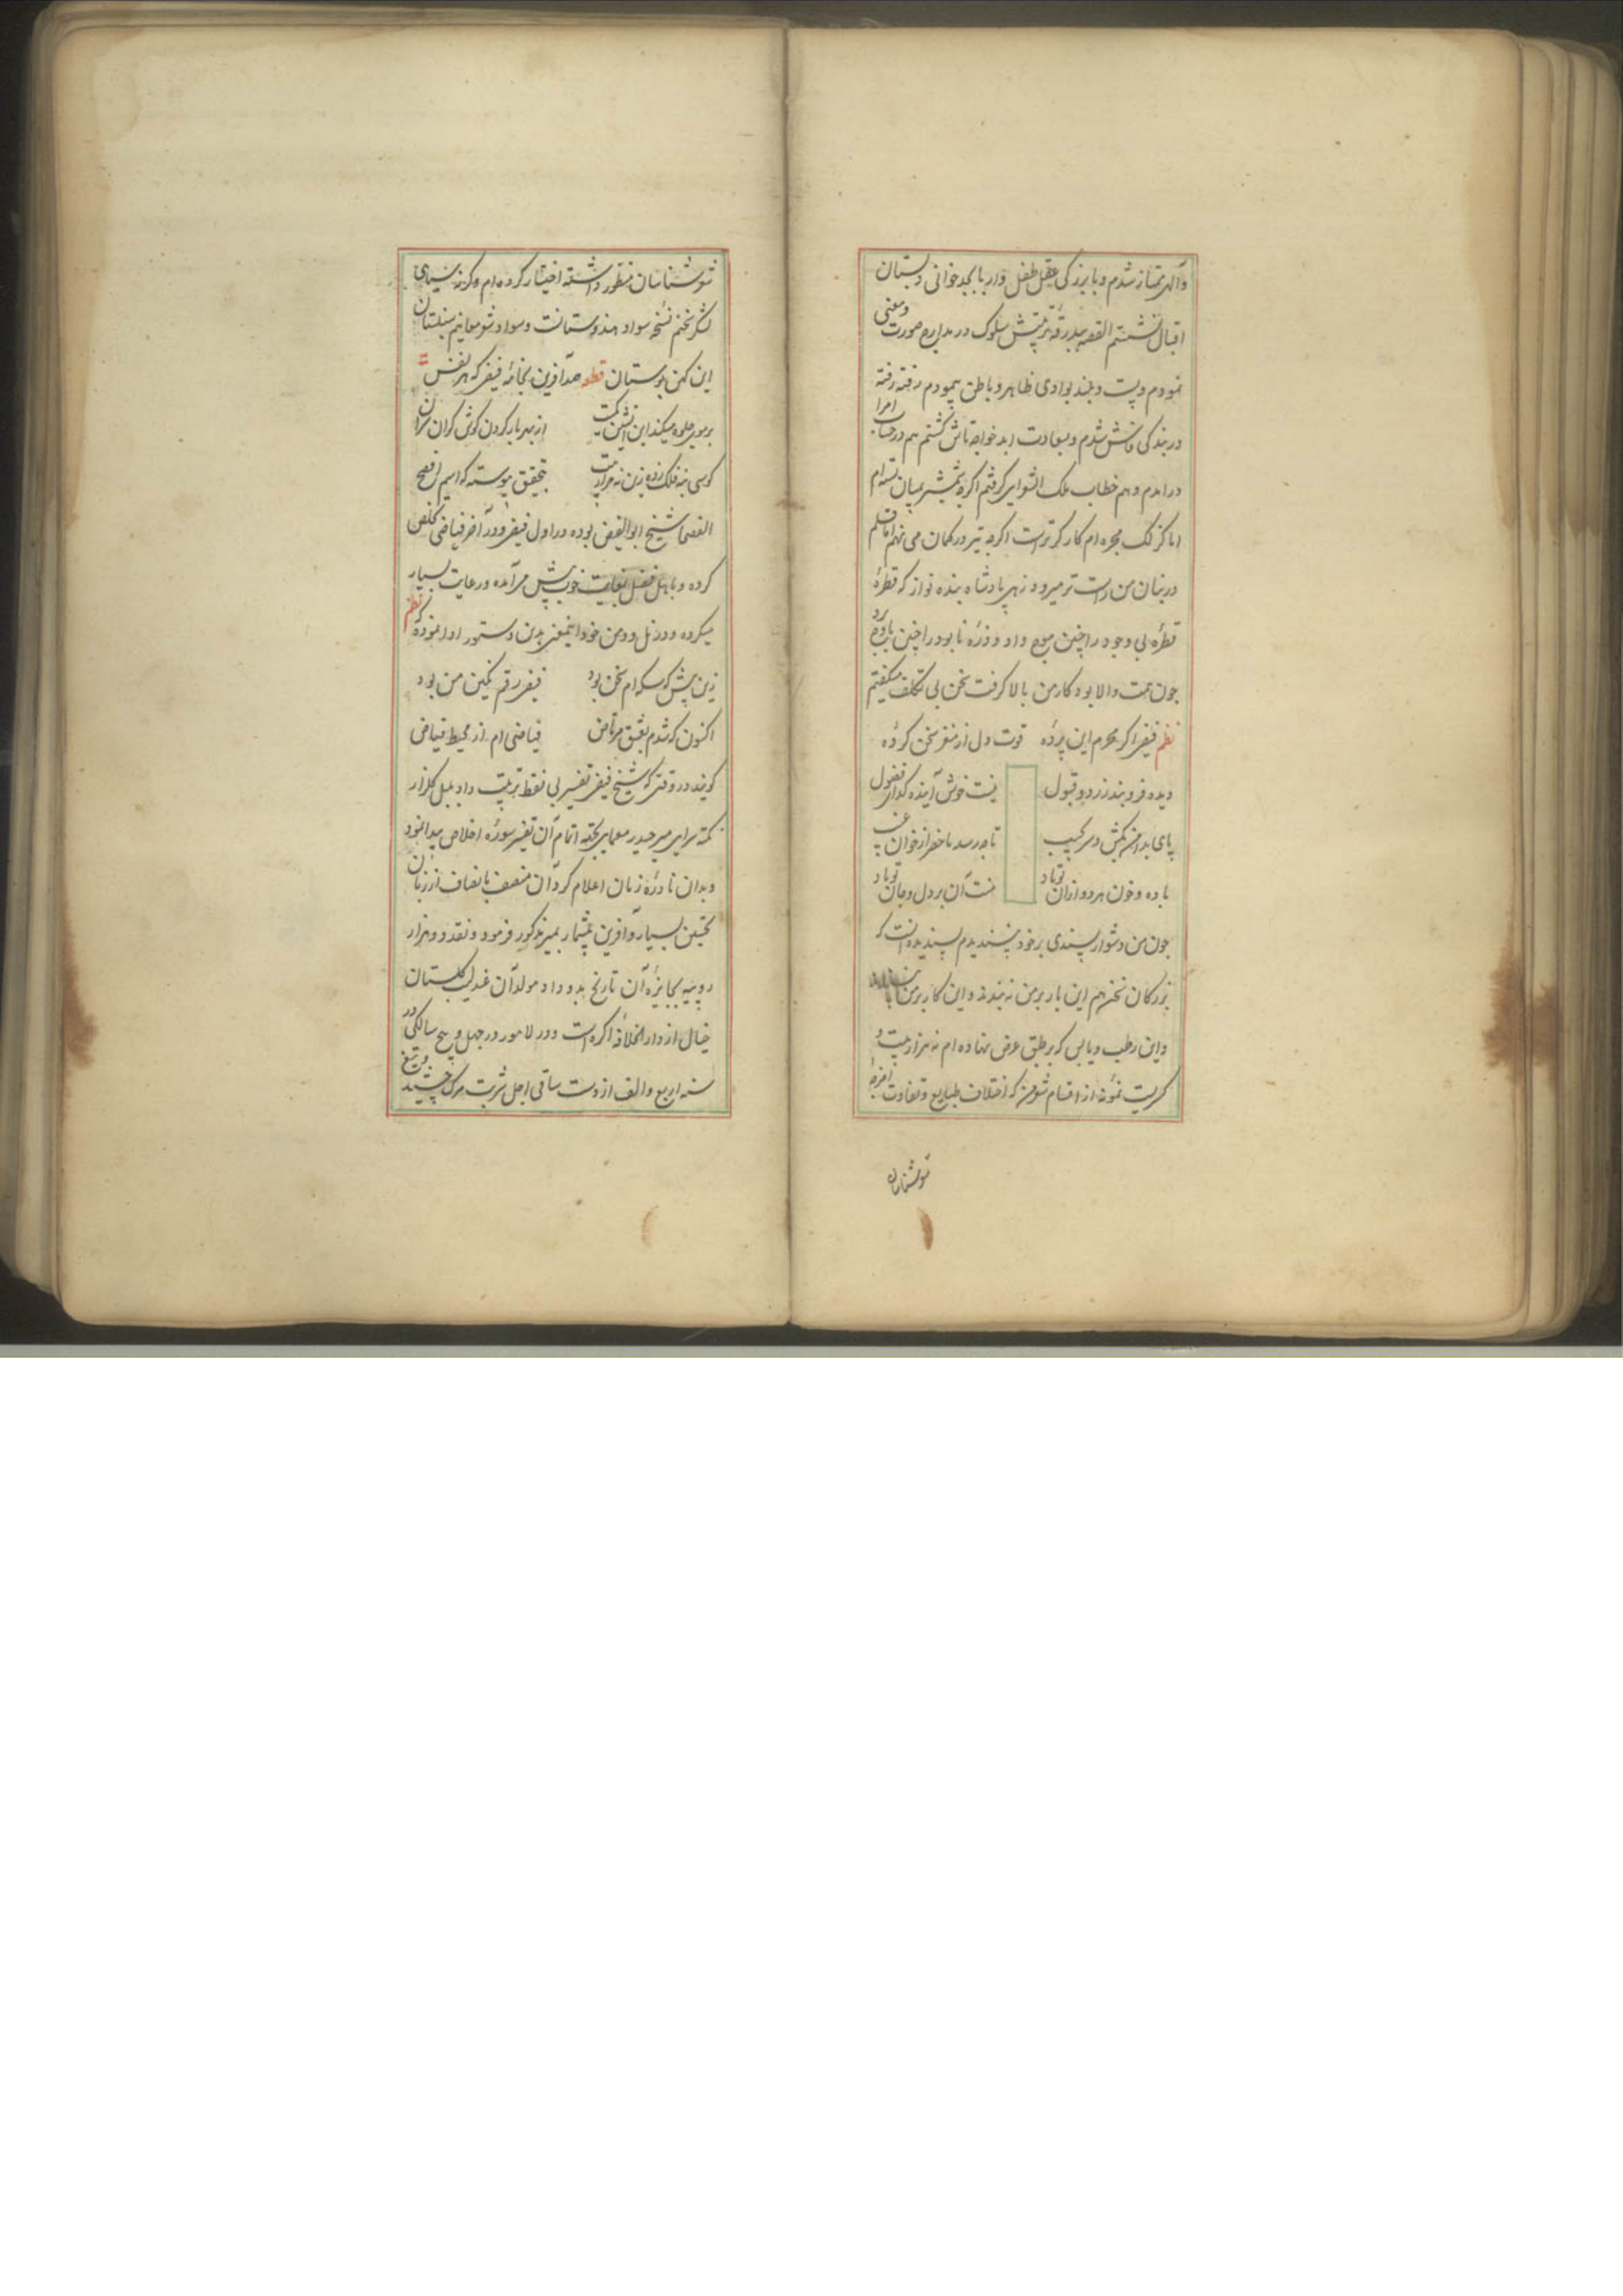 و آلهی ممتاز شدم و با بزرگی عقل طفل وار بابجد خوانی دبستان
اقبال نشستم القصه ببدرقه تربیتش سلوک در مدارج صورت و معنی
نمودم و پست و بلند بوادی ظاهر و باطن پیمودم رفته رفته
در بندگی خاصش شدم و بسعادت ابد خواجه تاش گشتم هم در حساب امرا
درامدم و هم خطاب ملک الشعرایی گرفتم اگرچه شمشیر بمیان بسته ام
اما گزلک محبره ام کارگرترست اگرچه تیر در کمان می نهم اما قلم
در بنان من راست تر میرود زهی پادشاه بنده نواز که قطرهٔ
قطرهٔ بی وجود را چنین موج داد و ذرّه نابود را چنین باوج برد
چون همت والا بود کار من بالا گرفت سخن بی تکلف میگفتم
نظم فیضی اگر محرم این پردهٔ قوت دل از مغز سخن کردهٔ
دیده فرو بند ز رد و قبول نیست خوش آینده گدای فضول
پای بدامن کش و سر بجیب تا چه رسد ماحضر از خوان غیب
باده و خون هر دو ازان تو باد منت آن بر دل و جان تو باد
چون من دشوار پسندی بر خود پسندیدم پسندیده آنست که
بزرگان سخن هم این بار بر من نه بندند و این کار بر من
و این رطب و یابس که بر طبق عرض نهاده ام نه هزار بیت و
کسریست نمونه از اقسام شعر من که اختلاف طبایع و تفاوت امزجه
شعرشناسان
شعرشناسان منظور داشته اختیار کرده ام وگرنه سیاهی
لشکر سخنم نسخه سواد هندوستانست و سواد شعر معانیم سنبلستان
این کهن بوستان قطعه صد آفرین بخامهٔ فیضی که هر نفس
بر مور جلوه میکند این آتشین کمیت از بهر باز کردن گوش گران سران
کوسی بنه فلک زده زین نه هزار بیت بتحقیق پیوسته که اسم افصح
الفصحا شیخ ابوالفیض بوده در اول فیضی و در آخر فیاضی تخلص
کرده و با اهل فضل بغایت خوب پیش می آمده و رعایت بسیار
میکرده و در نل و دمن خود اینمعنی بدین دستور ادا نموده که نظم
زین پیش که سکه ام سخن بود فیضی رقم نگین من بود
اکنون که شدم بعشق مرتاض فیاضی ام از محیط فیاض
گویند در وقتی که شیخ فیضی تفسیر بی نقط ترتیب داد بلبل گلزار
نکته سرایی میر حیدر معمایی بجهة اتمام آن تفسیر سورهٔ اخلاص پیدا نمود
و بدان نادرهٔ زمان اعلام کرد آن منصف با انصاف از زبان
تحسین بسیار و آفرین بیشمار بمیر مذکور فرمود و نقد دو هزار
روپیه بجایزهٔ آن تاریخ بدو داد مولد آن عندلیب گلستان
خیال از دار الخلافه اگره است و در لاهور در چهل و پنج سالگی در
سنه اربع و الف از دست ساقی اجل شربت مرگ چشید